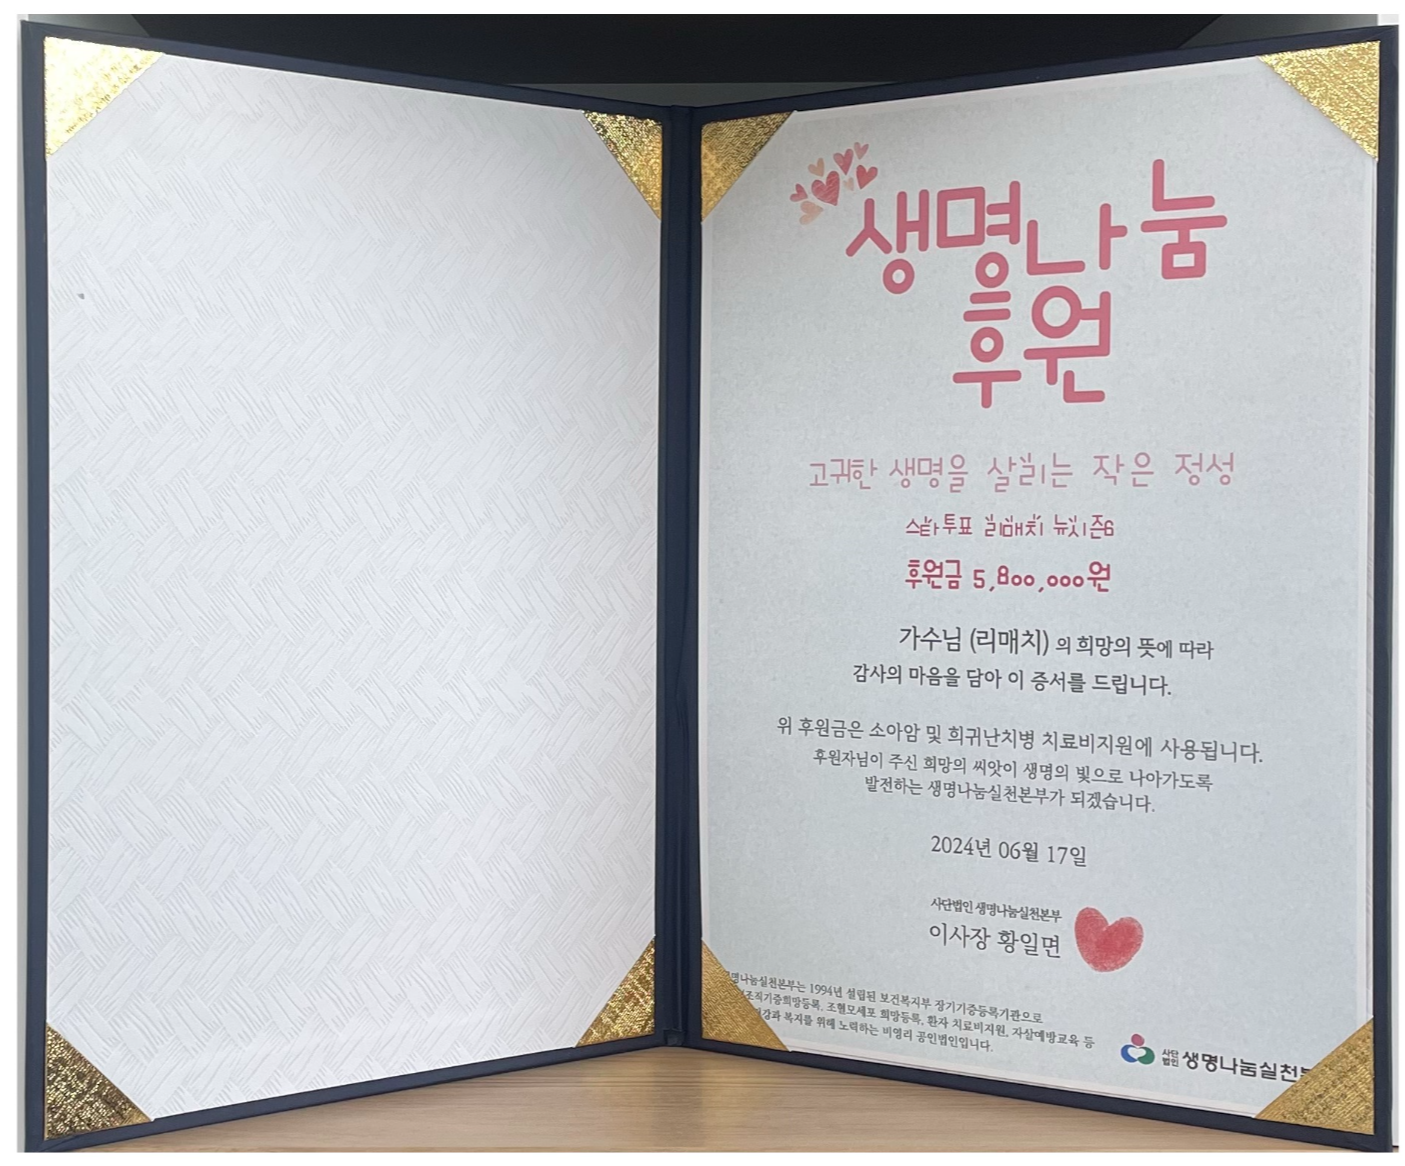 생명나눔
후원
고귀한 생명을 살리는 작은 정성
스타투표 리매치 뉴시즌6
후원금 5,800,000원
가수님 (리매치) 의 희망의 뜻에 따라
감사의 마음을 담아 이 증서를 드립니다.
위 후원금은 소아암 및 희귀난치병 치료비지원에 사용됩니다.
후원자님이 주신 희망의 씨앗이 생명의 빛으로 나아가도록
발전하는 생명나눔실천본부가 되겠습니다.
2024년 06월 17일
사단법인 생명나눔실천본부
이사장 황일면
명나눔실천본부는 1994년 설립된 보건복지부 장기기증등록기관으로
조직기증희망등록, 조혈모세포 희망등록, 환자 치료비지원, 자살예방교육 등
강과 복지를 위해 노력하는 비영리 공인법인입니다.
사단
법인 생명나눔실천